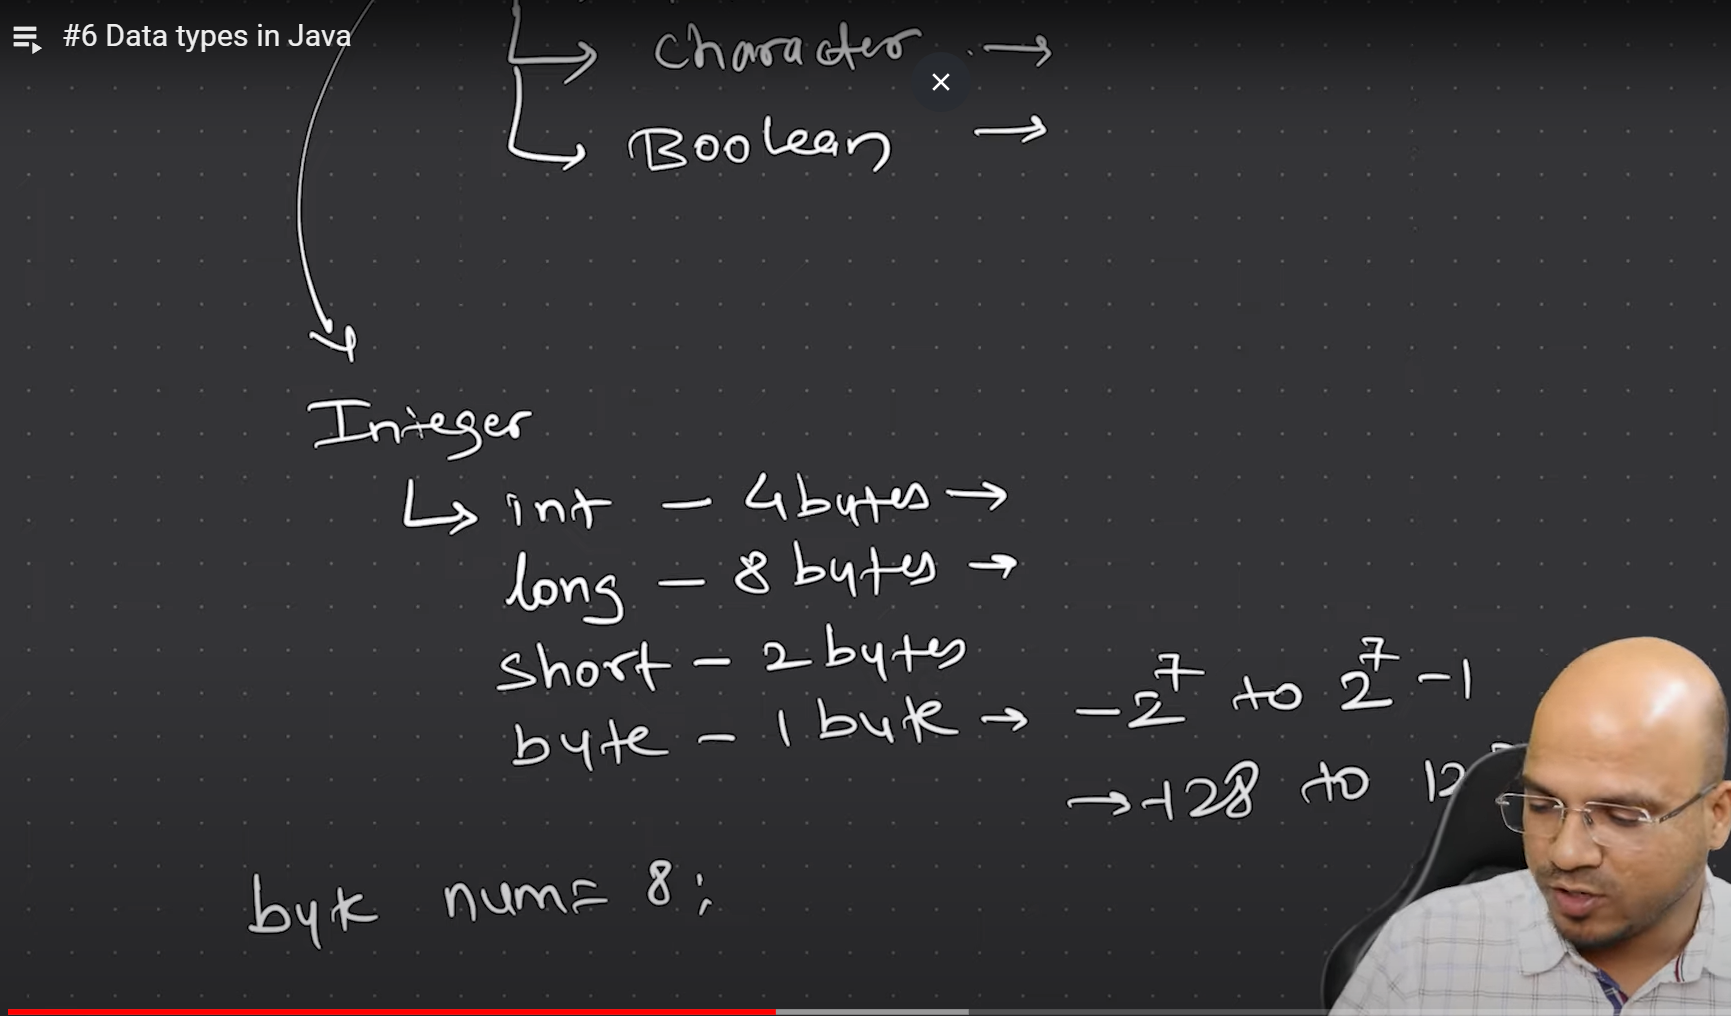 #6 Data types in Java
Character →
Boolean →
Integer
int - 4 bytes →
long - 8 bytes →
short - 2 bytes
byte - 1 byte → -2⁷ to 2⁷ -1
→ -128 to 12
byte num = 8;